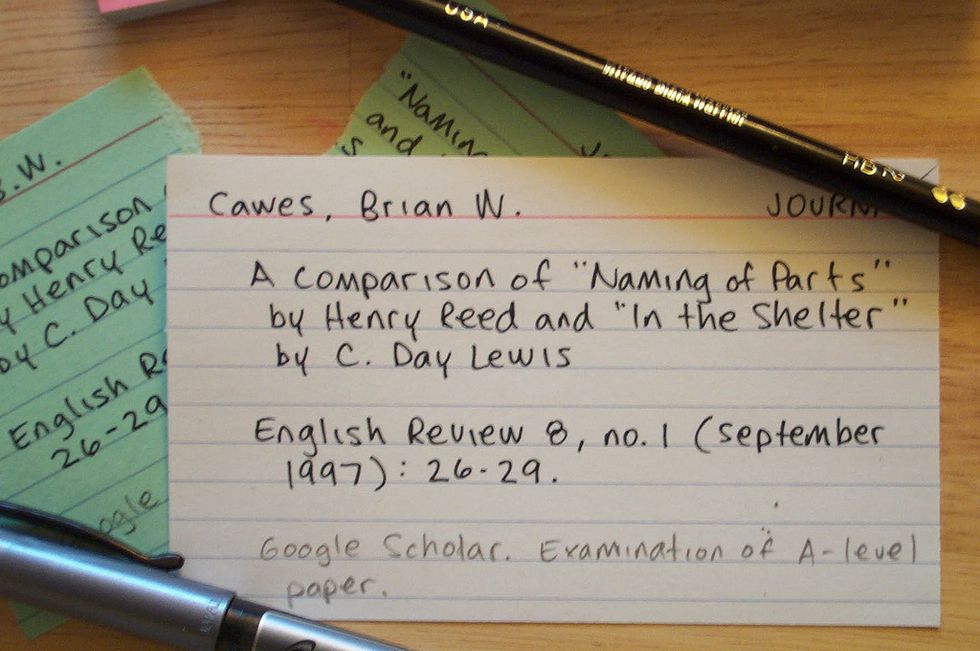 USA
Mirado Black Warrior
HB 2
"Naming
and
B.W.
Comparison
y Henry Re
by C. Day
English Re
26-29
ogle
Cawes, Brian W.
JOURN
A comparison of "Naming of Parts"
by Henry Reed and "In the Shelter"
by C. Day Lewis
English Review 8, no. 1 (September
1997): 26-29.
Google Scholar. Examination of A-level
paper.